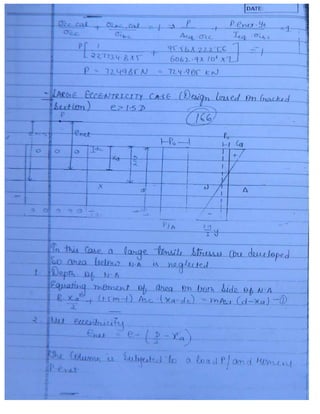 DATE
σcc,cal + σcbc,cal = 1 → P + P·enet·yt = 1
σcc σcbc Aeq σcc Ieq σcbc
P [ 1 + ] = 1
P = 724985 N = 724.985 KN
- LARGE ECCENTRICITY CASE (Design based on Cracked
Section) e > 1.5 D
166
P
enet
xa
x
d
P/A
N A
In this case a large tensile stresses are developed
so area below N.A is neglected
1. Depth of N.A
Equating moment of area on both side of N.A
B xa²/2 + (1.5m-1) Asc (xa-dc) = mAst (d-xa) -①
2. Net eccentricity
Enet = e - (D/2 - xa)
The Column is Subjected to a load P and Moment
P·enet